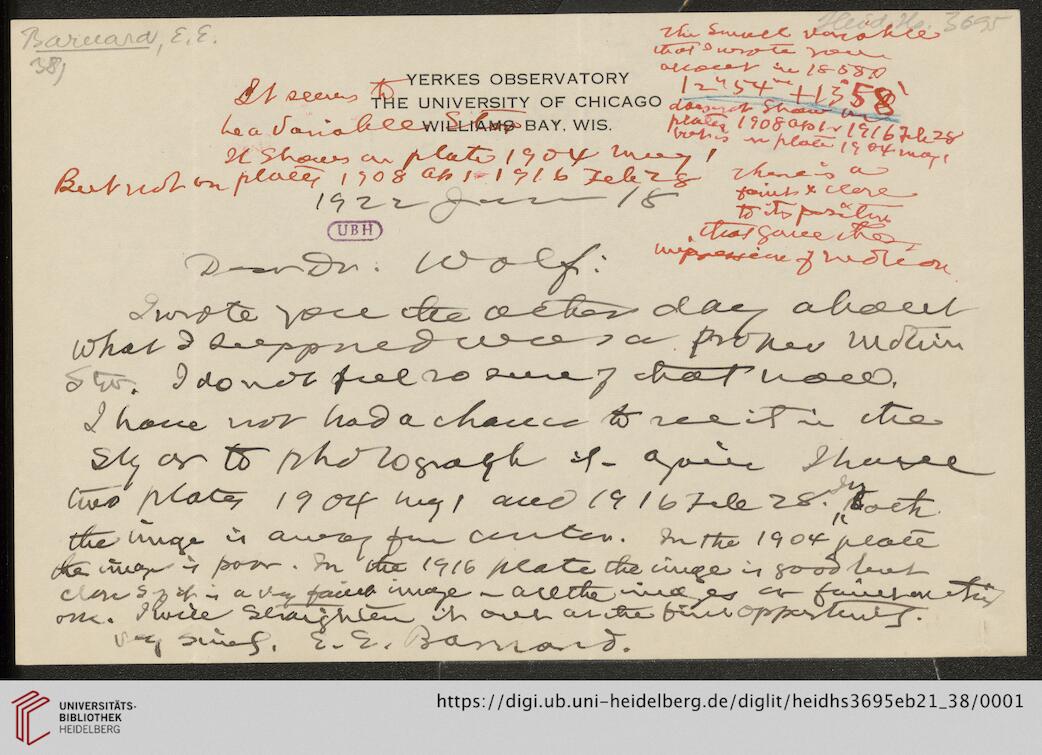 Barnard, E.E.
38)
Heid. Hs. 3695
The small variable
that I wrote you
about in 1855.0
12h 54m +13° 58'
does not show on
plates 1908 Apl 1916 Feb 28
but is on plate 1904 May 1
There is a
faint * close
to its position
that gave the
impression of motion
YERKES OBSERVATORY
THE UNIVERSITY OF CHICAGO
WILLIAMS BAY, WIS.
It seems to
be a Variable Star
It shows on plate 1904 May 1
But not on plates 1908 Apl - 1916 Feb 28
1922 June 18
UBH
Dear Dr. Wolf:
I wrote you the other day about
what I supposed was a proper motion
star. I do not feel so sure of that now.
I have not had a chance to see it in the
sky or to photograph it again I have
two plates 1904 May 1 and 1916 Feb 28. In both
the image is away from center. In the 1904 plate
the image is poor. In the 1916 plate the image is good but
close S p it is a very faint image - all the images are faint on this
one. I will straighten it out at the first opportunity.
Very sincely. E. E. Barnard.
UNIVERSITÄTS-
BIBLIOTHEK
HEIDELBERG
https://digi.ub.uni-heidelberg.de/diglit/heidhs3695eb21_38/0001